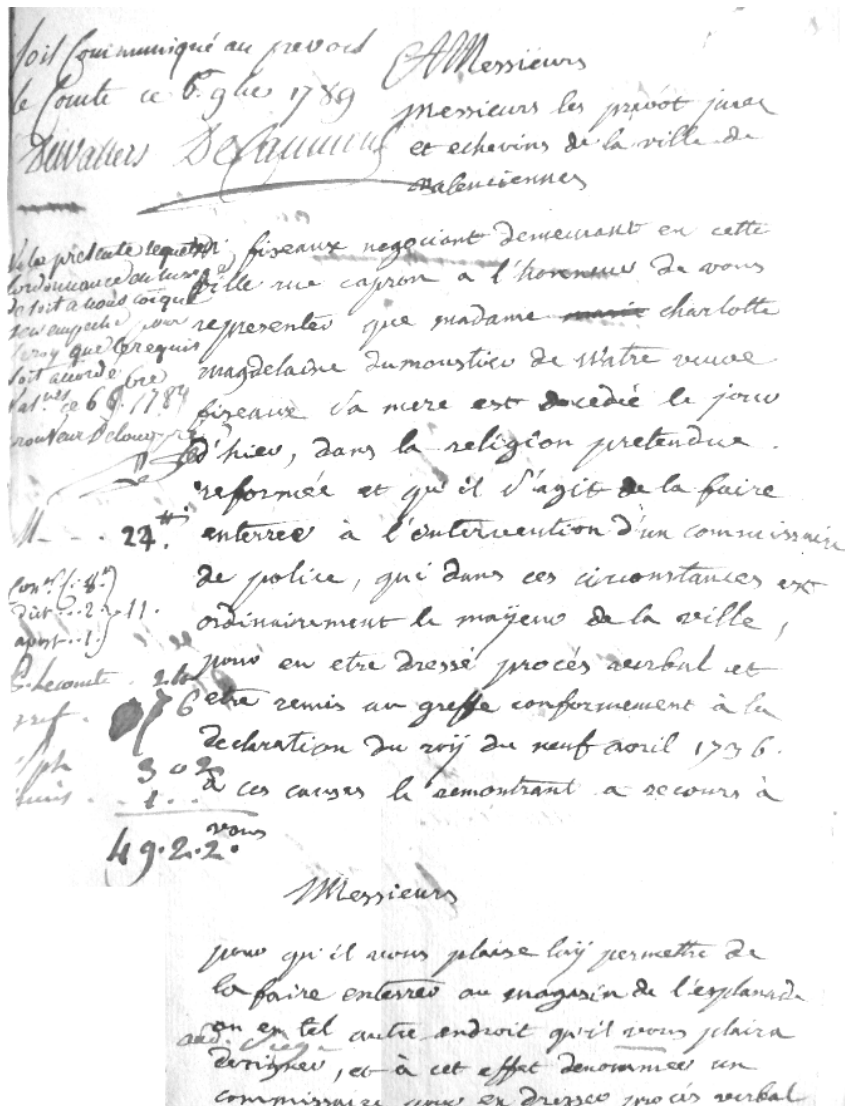 Soit Communiqué au prevost
le Comte ce 6 9bre 1789
A Messieurs
Messieurs les prevot jurez
et echevins de la ville de
valenciennes
Vu la presente requete
l'ordonnance au bas
de soit a nous
n'empeche pour
le roy que le requis
soit accordé
ce 6 9bre 1789
fiseaux negociant demeurant en cette
ville rue capron a l'honneur de vous
representer que madame marie charlotte
magdelaine dumoustier de Watre veuve
fiseaux sa mere est decedié le jour
d'hier, dans la religion pretendue
reformée et qu'il s'agit de la faire
enterrer à l'intervention d'un commissaire
de police, qui dans ces circonstances est
ordinairement le mayeur de la ville,
pour en etre dressé procés verbal et
etre remis au greffe conformement à la
declaration du roÿ du neuf avril 1736.
à ces causes le remontrant a recours à
vous
24
2 11.
1
Lecomte
7 6
3 2
1
49.2.2.
Messieurs
pour qu'il vous plaise luÿ permettre de
la faire enterrer au magasin de l'esplanade
ou en tel autre endroit qu'il vous plaira
designer, et à cet effet denommer un
commissaire pour en dresser procés verbal